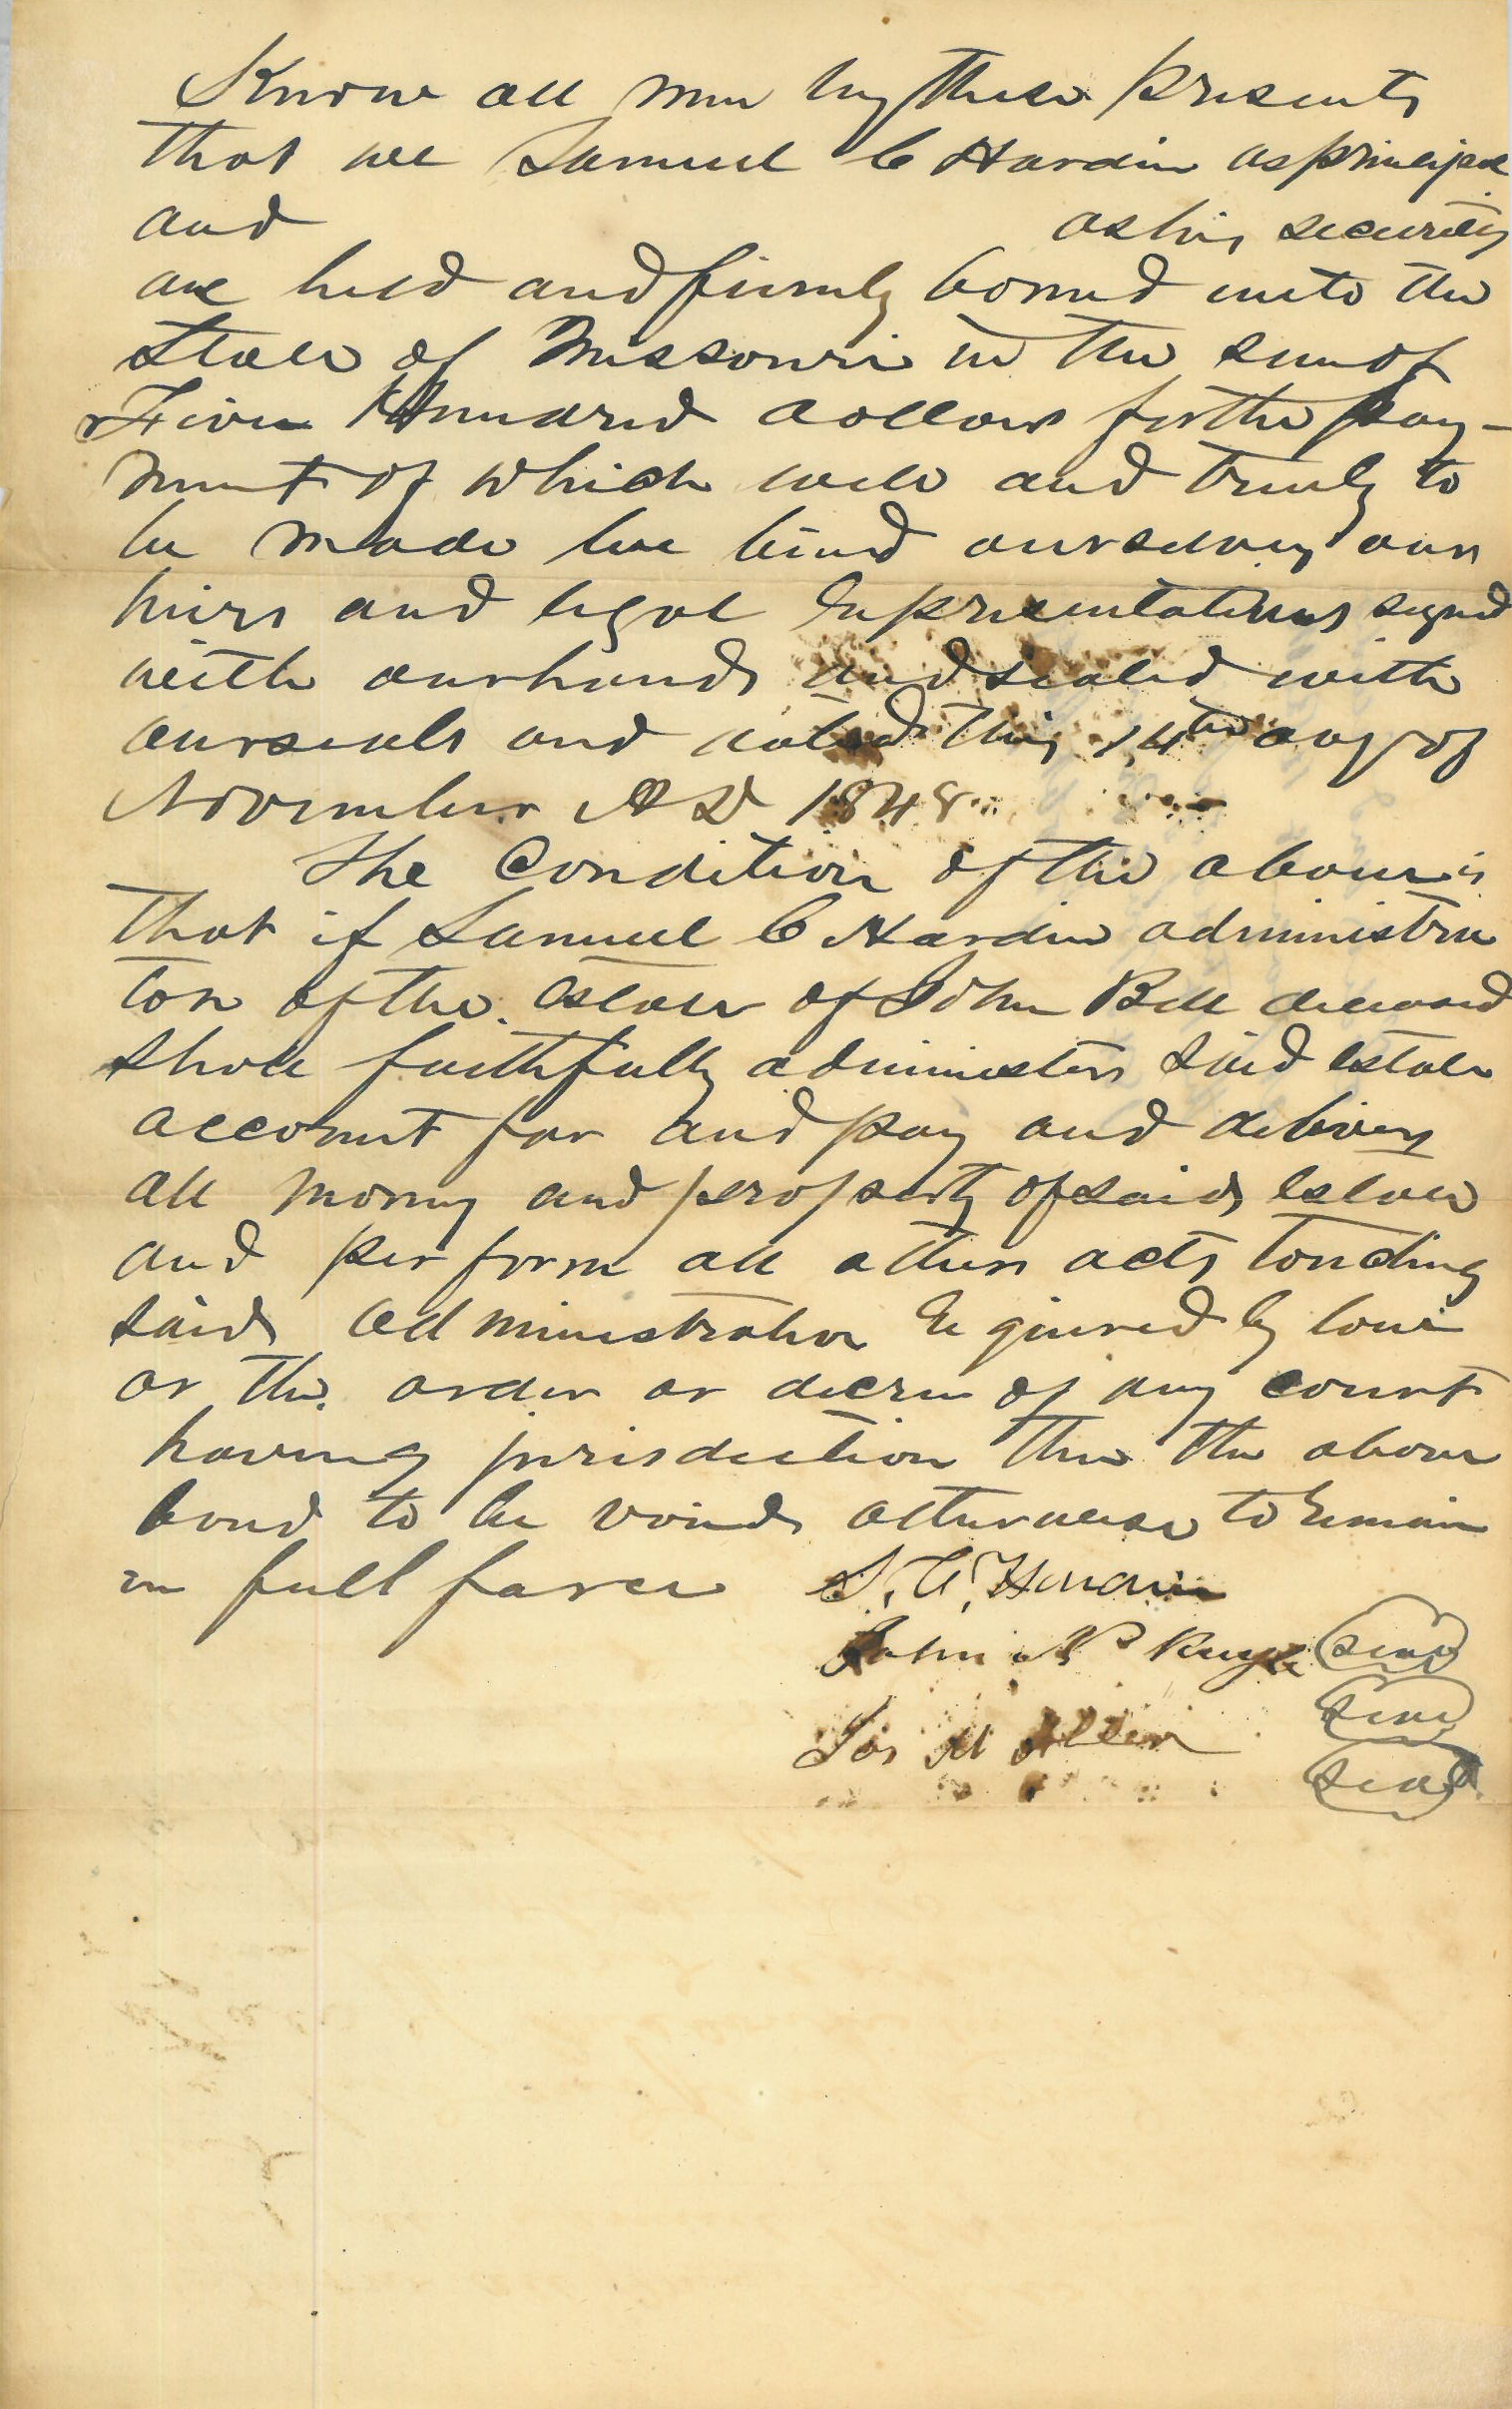 Know all men by these presents
that we Samuel C Hardin as principal
and as his security
are held and firmly bound unto the
State of Missouri in the sum of
Five Hundred dollars for the pay-
ment of which well and truly to
be made we bind ourselves our
heirs and legal representatives signed
with our hands and sealed with
our seals and dated this 14th day of
November A D 1848
The Condition of the above is
that if Samuel C Hardin administra
tor of the estate of John Bell deceased
shall faithfully administer said estate
account for and pay and deliver
all money and property of said estate
and perform all other acts touching
said administration required by law
or the order or decree of any court
having jurisdiction then the above
bond to be void otherwise to remain
in full force S. C. Hardin
John seal
Jos M Allen seal
seal